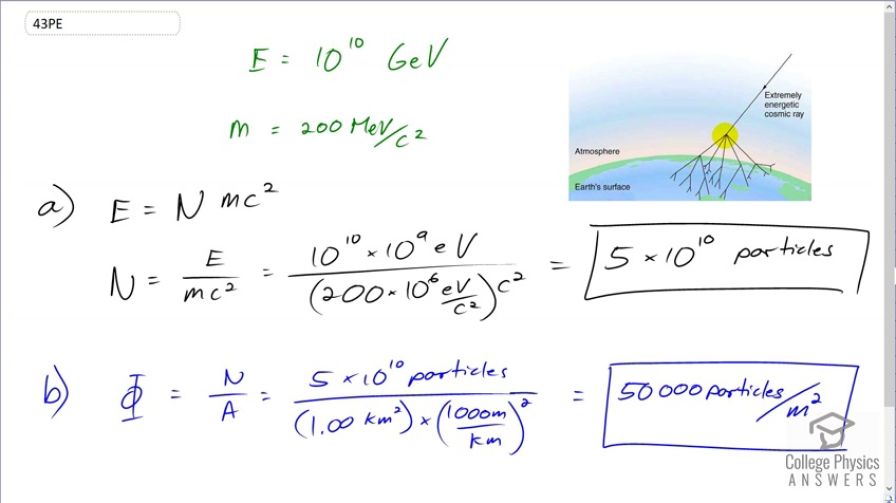 43PE
E = 10¹⁰ GeV
m = 200 MeV/c²
Extremely
energetic
cosmic ray
Atmosphere
Earth's surface
a) E = N mc²
N = E/mc² = 10¹⁰ × 10⁹ eV / (200 × 10⁶ eV/c²)c² = 5 × 10¹⁰ particles
b) Φ = N/A = 5 × 10¹⁰ particles / (1.00 km²) × (1000m/km)² = 50 000 particles/m²
College Physics
ANSWERS